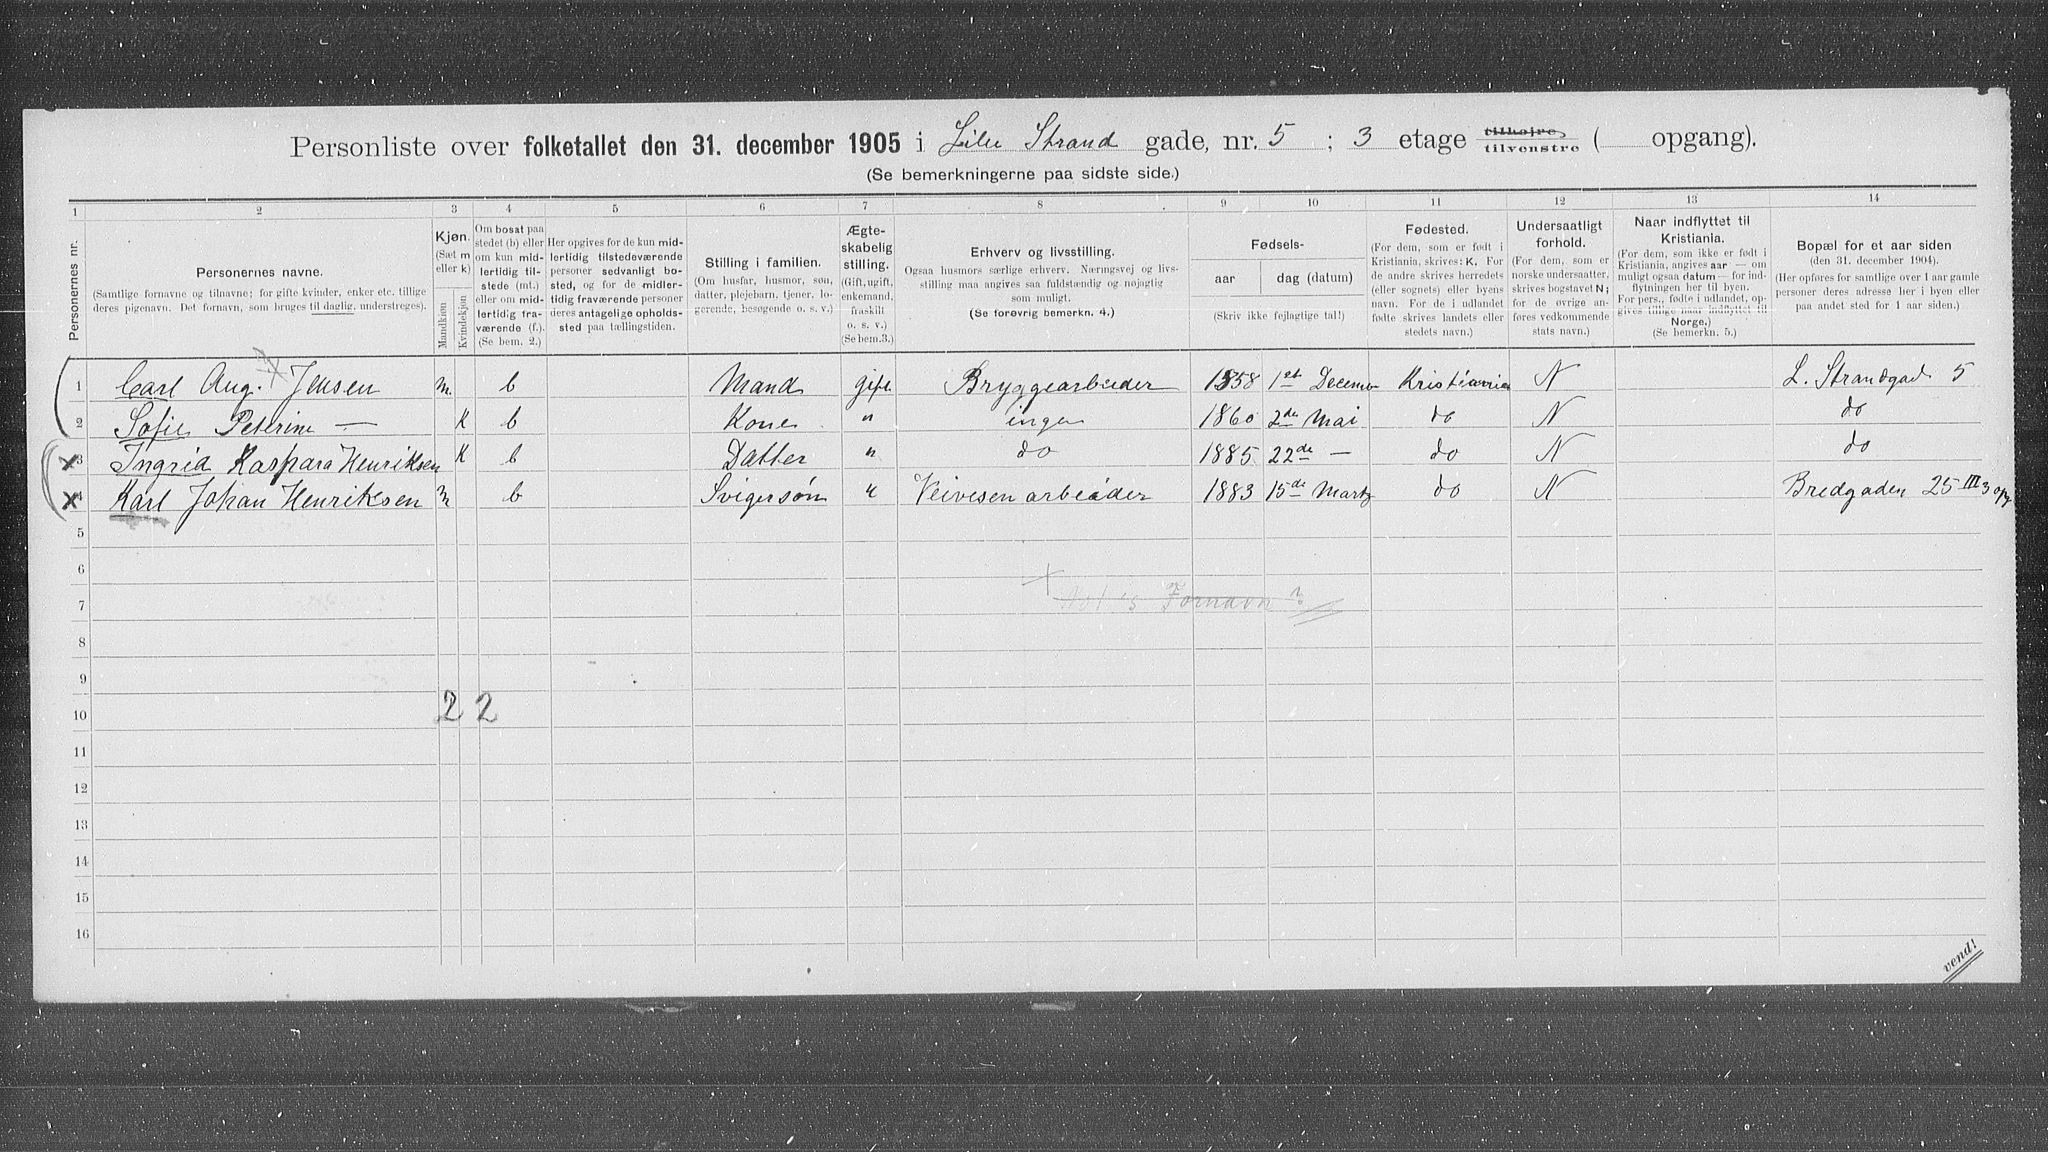 Personliste over folketallet den 31. december 1905 i Lille Strand gade, nr. 5 ; 3 etage tilhøjre tilvenstre ( opgang).
(Se bemerkningerne paa sidste side.)
1 2 3 4 5 6 7 8 9 10 11 12 13 14
Personernes nr.
Personernes navne.
(Samtlige fornavne og tilnavne; for gifte kvinder, enker etc. tillige
deres pigenavn. Det fornavn, som bruges til daglig, understreges).
Kjøn.
(Sæt m
eller k)
Mandkjøn
Kvindekjøn
Om bosat paa
stedet (b) eller
om kun mid-
lertidig til-
stede (mt.)
eller om mid-
lertidig fra-
værende (f.).
(Se bem. 2.)
Her opgives for de kun mid-
lertidig tilstedeværende
personer sedvanligt bo-
sted, og for de midler-
tidig fraværende personer
deres antagelige opholds-
sted paa tællingstiden.
Stilling i familien.
(Om husfar, husmor, søn,
datter, plejebarn, tjener, lo-
gerende, besøgende o. s. v.)
Ægte-
skabelig
stilling.
(Gift, ugift,
enkemand,
fraskilt
o. s. v.)
(Se bem. 3.)
Erhverv og livsstilling.
Ogsaa husmors særlige erhverv. Næringsvej og livs-
stilling maa angives saa fuldstændig og nøjagtig
som muligt.
(Se forøvrig bemerkn. 4.)
Fødsels-
aar dag (datum)
(Skriv ikke fejlagtige tal!)
Fødested.
(For dem, som er født i
Kristiania, skrives: K. For
de andre skrives herredets
(eller sognets) eller byens
navn. For de i udlandet
fødte skrives landets eller
stedets navn.)
Undersaatligt
forhold.
(For dem, som er
norske undersaatter,
skrives bogstavet N;
for de øvrige an-
føres vedkommende
stats navn.)
Naar indflyttet til
Kristiania.
(For dem, som ikke er født i
Kristiania, angives aar — om
muligt ogsaa datum — for ind-
flytningen her til byen.
For pers., fødte i udlandet, op-
gives tillige naar indflyttet til
Norge.)
(Se bemerkn. 5.)
Bopæl for et aar siden
(den 31. december 1904).
(Her opføres for samtlige over 1 aar gamle
personer deres adresse her i byen eller
paa andet sted for 1 aar siden.)
1 Carl Aug. Jensen m. b Mand gift. Bryggearbeider 1858 1st Decemo Kristiania N L. Strandgad 5
2 Sofie Petrine — K b Kone " ingen 1860 2de Mai do N do
3 Ingrid Kaspara Henriksen K b Datter " do 1885 22de — do N do
4 Karl Johan Henriksen m b Svigersøn " Veivesen arbeider 1883 15de Martz do N Bredgaden 25 III 3 opg
5
6
7 Fornavn ?
8
9
10 2 2
11
12
13
14
15
16
vend!